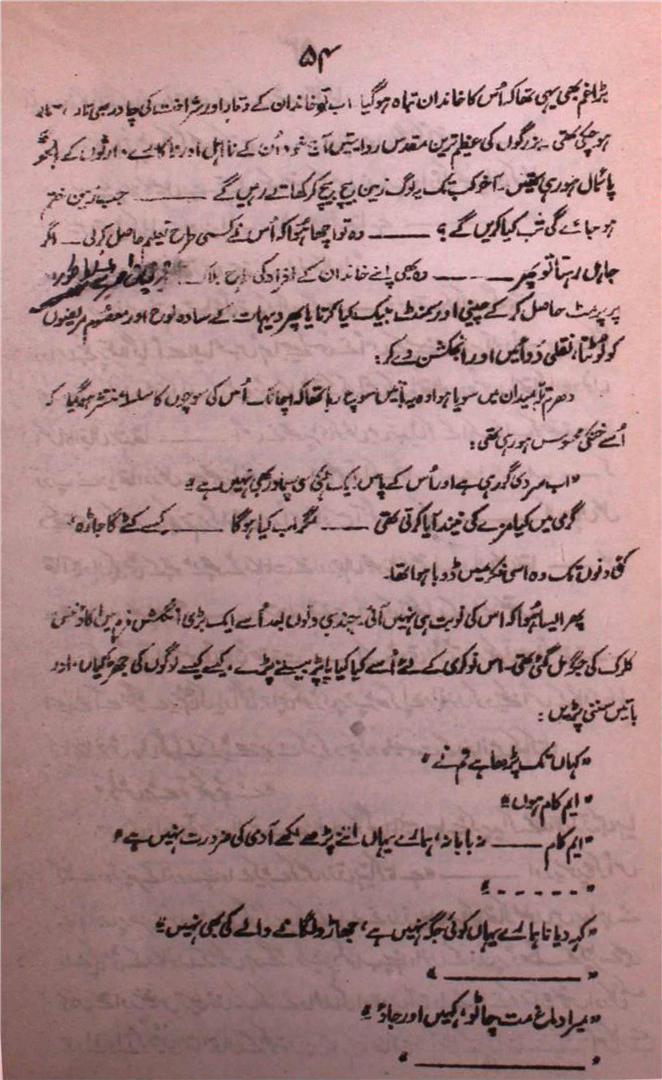 ۵۴
بڑا غم بھی یہی تھا کہ اُس کا خاندان تباہ ہوگیا اب تو خاندان کے وقار اور شرافت کی چادر بھی تار تار
ہو چکی تھی۔ بزرگوں کی عظیم ترین مقدس روایتیں آج خود اُن کے نااہل اور ناکارے وارثوں کے ہاتھوں
پائمال ہو رہی تھیں۔ آخر کب تک یہ لوگ زمین بیچ بیچ کر کھاتے رہیں گے ——— جب زمین ختم
ہو جائے گی تب کیا کریں گے؟ ——— وہ تو اچھا ہُوا کہ اُس نے کسی طرح تعلیم حاصل کر لی۔ اگر
جاہل رہتا تو پھر ——— وہ بھی اپنے خاندان کے افراد کی طرح بلاک
پر پرمٹ حاصل کر کے چینی اور سمنٹ بلیک کیا کرتا یا پھر دیہات کے سادہ لوح اور معصوم مریضوں
کو لوٹتا، نقلی دوائیں اور انجکشن دے کر:
دھرم تلہ میدان میں سویا ہوا وہ یہ باتیں سوچ رہا تھا کہ اچانک اُس کی سوچوں کا سلسلہ منتشر ہوگیا کہ
اُسے خنکی محسوس ہو رہی تھی:
"اب سردی گر رہی ہے اور اُس کے پاس ایک ہلکی سی چادر بھی نہیں ہے"
گرمی میں کیا مزے کی نیند آیا کرتی تھی ——— مگر اب کیا ہو گا ——— کیسے کٹے گا جاڑہ"
کئی دنوں تک وہ اسی فکر میں ڈوبا ہوا تھا۔
پھر ایسا ہُوا کہ اس کی نوبت ہی نہیں آئی۔ چند ہی دنوں بعد اُسے ایک بڑی انگلش فرم میں اکاؤنٹس
کلرک کی جگہ مل گئی تھی۔ اس نوکری کے لئے اُسے کیا کیا پاپڑ بیلنے پڑے۔ کیسے کیسے لوگوں کی جھڑکیاں، اور
باتیں سننی پڑیں:
"کہاں تک پڑھا ہے تم نے"
"ایم کام ہوں"
"ایم کام ——— نہ بابا نہ، ہمارے یہاں اتنے پڑھے لکھے آدمی کی ضرورت نہیں ہے"
"- - - - - -"
"کہہ دیا نا ہمارے یہاں کوئی جگہ نہیں ہے، جھاڑو لگانے والے کی بھی نہیں"
"———"
"میرا دماغ مت چاٹو، کہیں اور جاؤ"
"———"